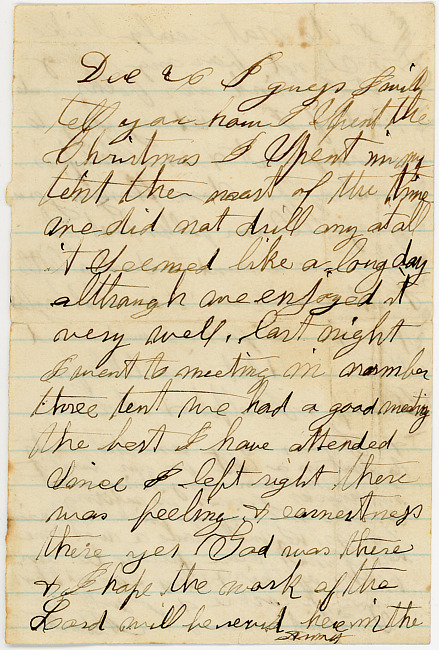 Dec 26 I guess I will
tell you how I Spent the
Christmas I Spent in my
tent the moast of the time
we did not drill any atall
it Seemed like a long day
although we enjoyed it
very well. last night
I went to meeting in nomber
three tent we had a good meeting
the best I have attended
Since I left right there
was feeling & earnestness
there yes God was there
& I hope the work of the
Lord will be revid here in the
Army